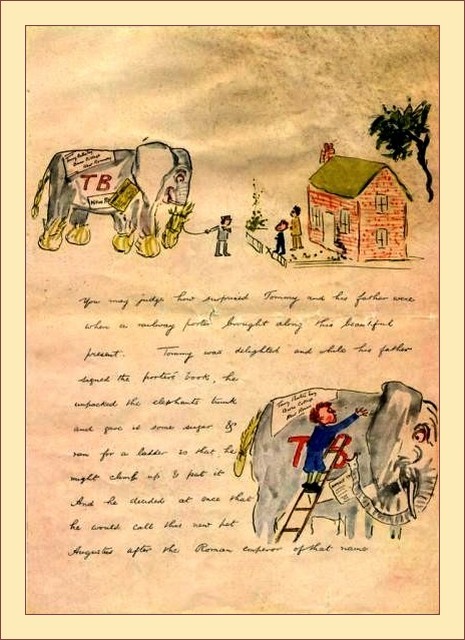 TB
You may judge how surprised Tommy and his father were
when a railway porter brought along this beautiful
present. Tommy was delighted and while his father
signed the porter's book, he
unpacked the elephants trunk
and gave it some sugar &
ran for a ladder so that he
might climb up & pat it
And he decided at once that
he would call this new pet
Augustus after the Roman emperor of that name
TB